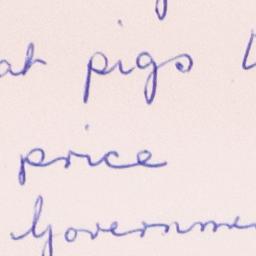 at pigs
price
Governme